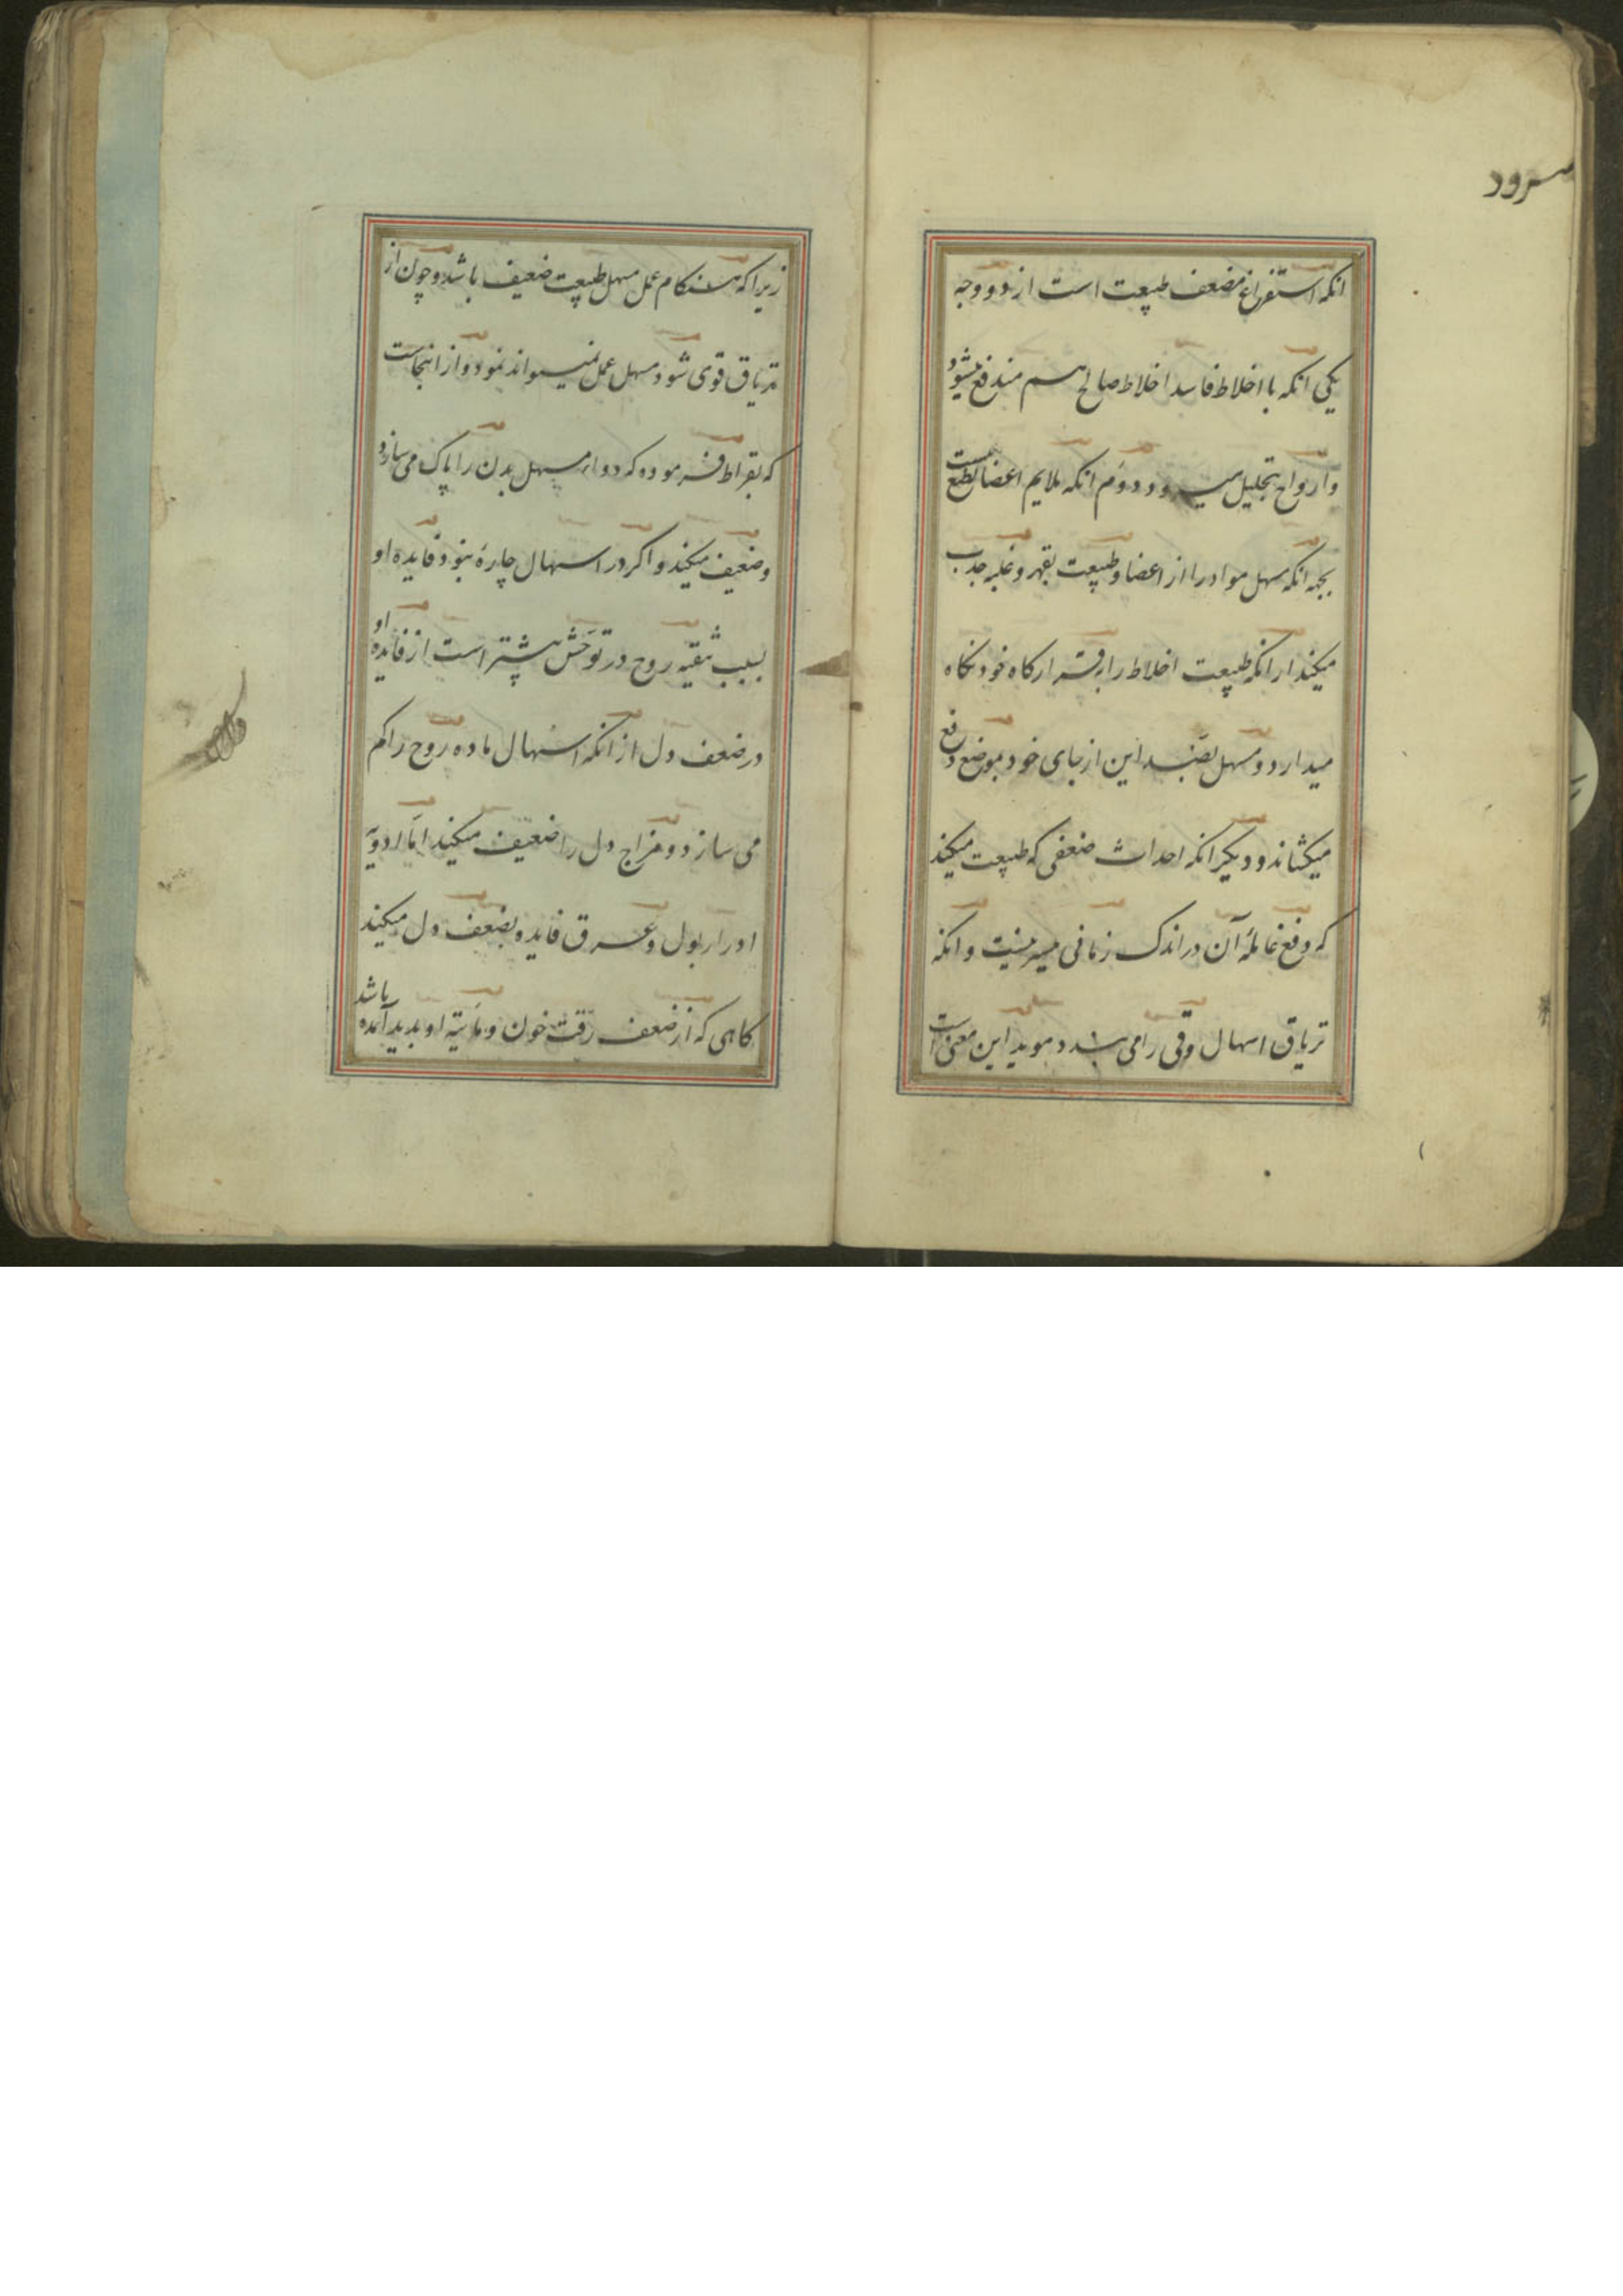 سرود
انکه استفراغ مضعف طبیعت است از دو وجه
یکی انکه با اخلاط فاسد اخلاط صالح هم مندفع میشود
وارواح بتحلیل میرود دوم انکه ملایم اعضا بطبع نیست
بجهة انکه مسهل مواد را از اعضا و طبیعت بقهر و غلبه جذب
میکند از انکه طبیعت اخلاط را در قرارکاه خود نکاه
میدارد و مسهل بضد این از جای خود بموضع دفع
میکشاند و دیکر انکه احداث ضعفی که طبیعت میکند
که دفع غائله آن در اندک زمانی میسر نیست و انکه
تریاق اسهال و قی را می بندد موید این معنی است
زیرا که هنکام عمل مسهل طبیعت ضعیف باشد و چون از
تریاق قوی شود مسهل عمل نمیتواند نمود و از انجاست
که بقراط فرموده که دواء مسهل بدن را پاک می سازد
وضعیف میکند و اکر در اسهال چارهٔ نبود فایده او
بسبب تنقیه روح در توحش بیشتر است از فایده او
در ضعف دل از انکه اسهال ماده روح را کم
می سازد و مزاج دل را ضعیف میکند اما ادویه
ادرار بول و عرق فایده بضعف دل میکند
کاهی که از ضعف رقت خون و مائیة او بدید آمده باشد